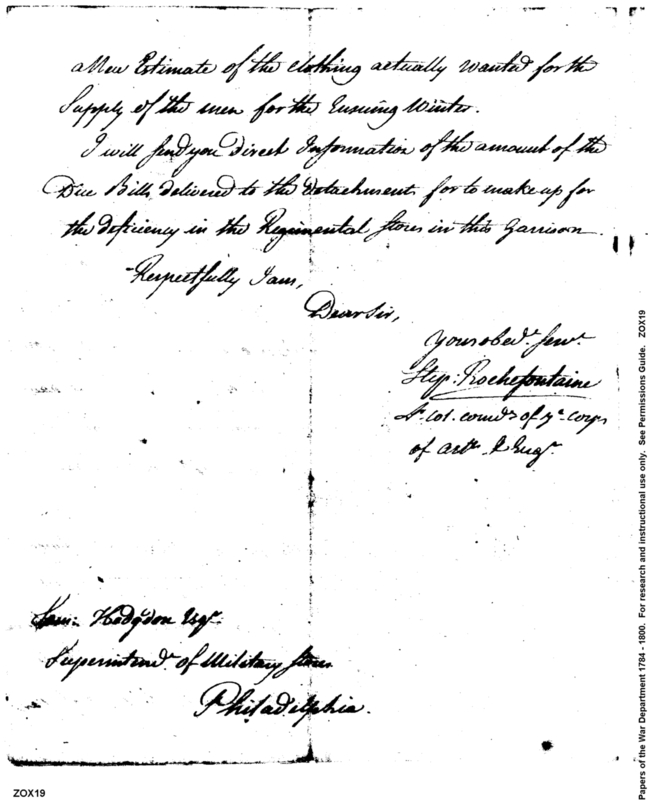 a New Estimate of the clothing actually wanted for the
Supply of the men for the Ensuing Winter.
I will send you Direct Information of the amount of the
Due Bills delivered to the detachments for to make up for
the deficiency in the Regimental Stores in this Garrison
Respectfully I am,
Dear Sir,
your obedt. servt.
Step: Rochefontaine
Lt. Col. comdt of ye. corps
of arte. & Engr.
Sam: Hodgdon Esqr.
Superintendt. of Military Stores
Philadelphia.
ZOX19
Papers of the War Department 1784 - 1800. For research and instructional use only. See Permissions Guide. ZOX19